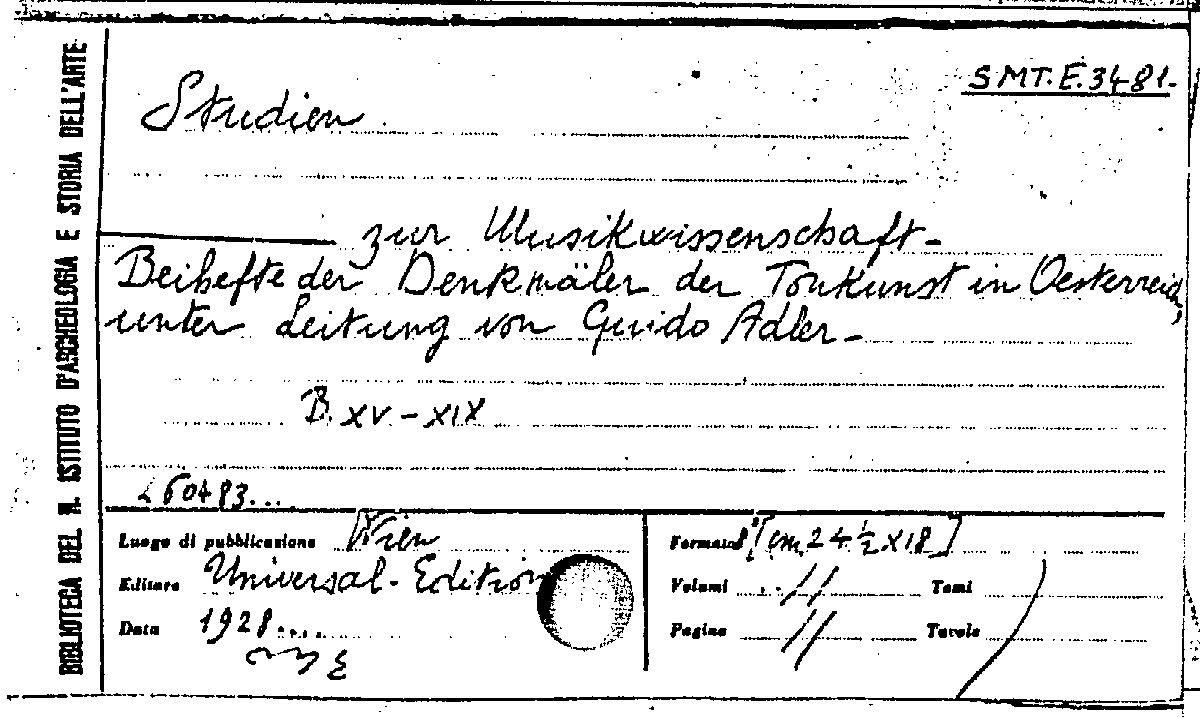 SMT.E.3481.
Studien
zur Musikwissenschaft-
Beihefte der Denkmäler der Tonkunst in Oesterreich,
unter Leitung von Guido Adler-
B. XV-XIX
60483...
Luogo di pubblicazione Wien
Editore Universal-Edition
Data 1928....
Formato 8° [cm 24½ x 18]
Volumi .. // Tomi
Pagine // Tavole
BIBLIOTECA DEL R. ISTITUTO D'ARCHEOLOGIA E STORIA DELL'ARTE